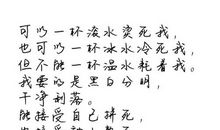 可以一杯滚水烫死我，
也可以一杯冰水冷死我，
但不能一杯温水耗着我。
我要的是黑白分明，
干净利落。
能接受自己摔死，